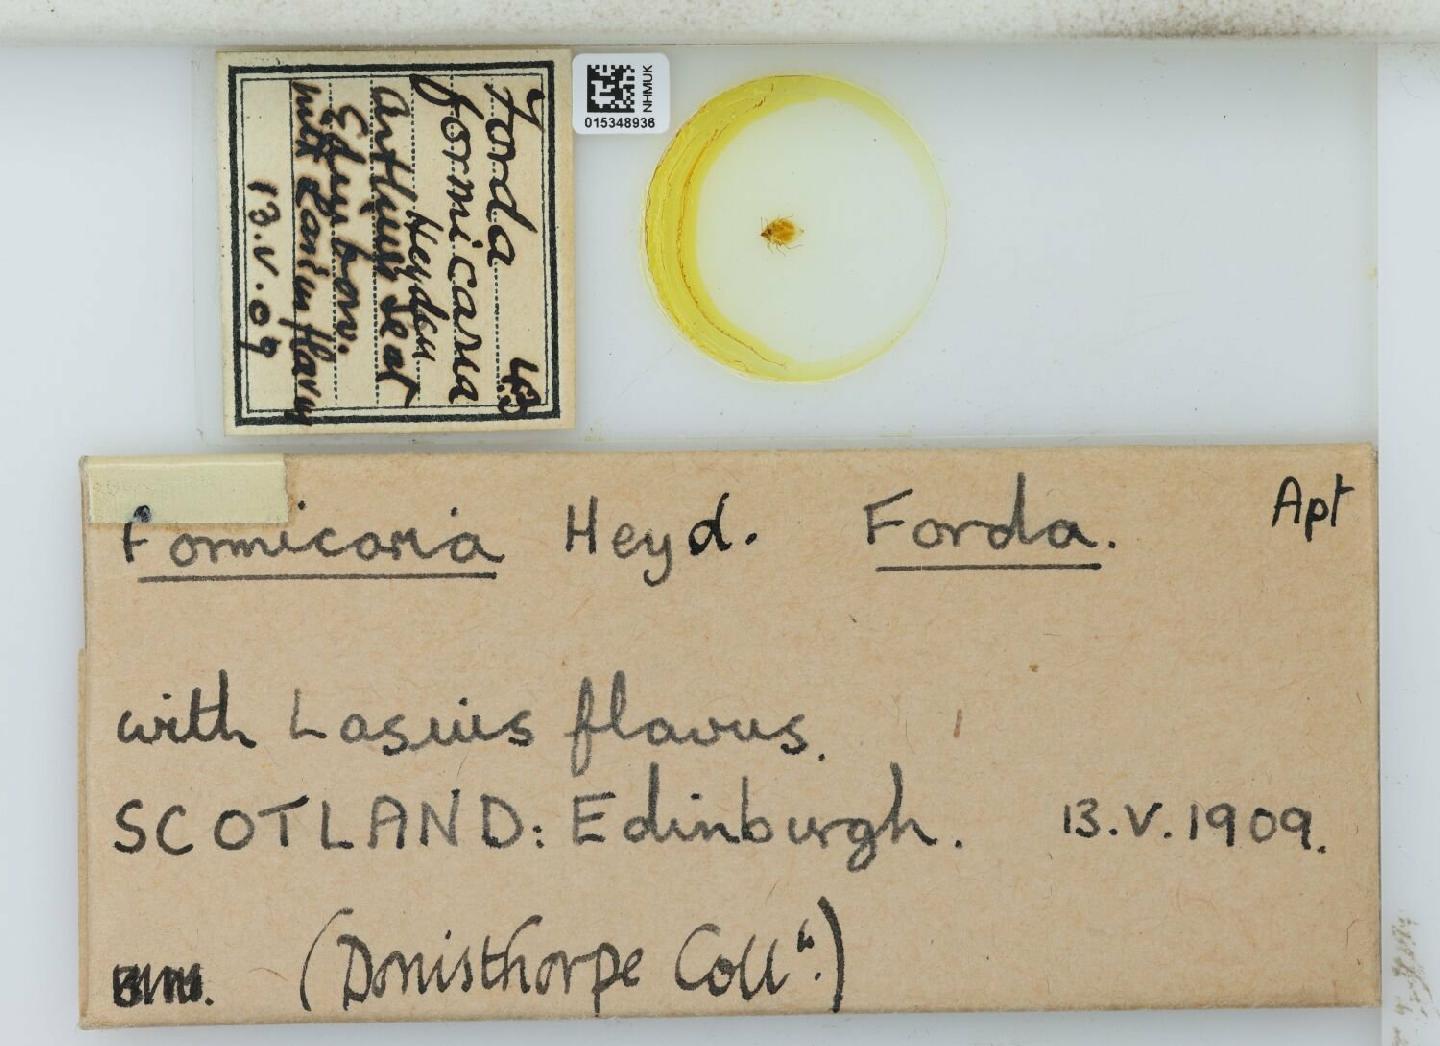 43
Forda
formicaria
Heyden
Arthurs Seat
Edinboro.
with Lasius flavus
13.V.09
NHMUK
015348936
Apt
Formicaria Heyd. Forda.
with Lasius flavus.
SCOTLAND: Edinburgh. 13.V.1909.
(Donisthorpe Coll".)